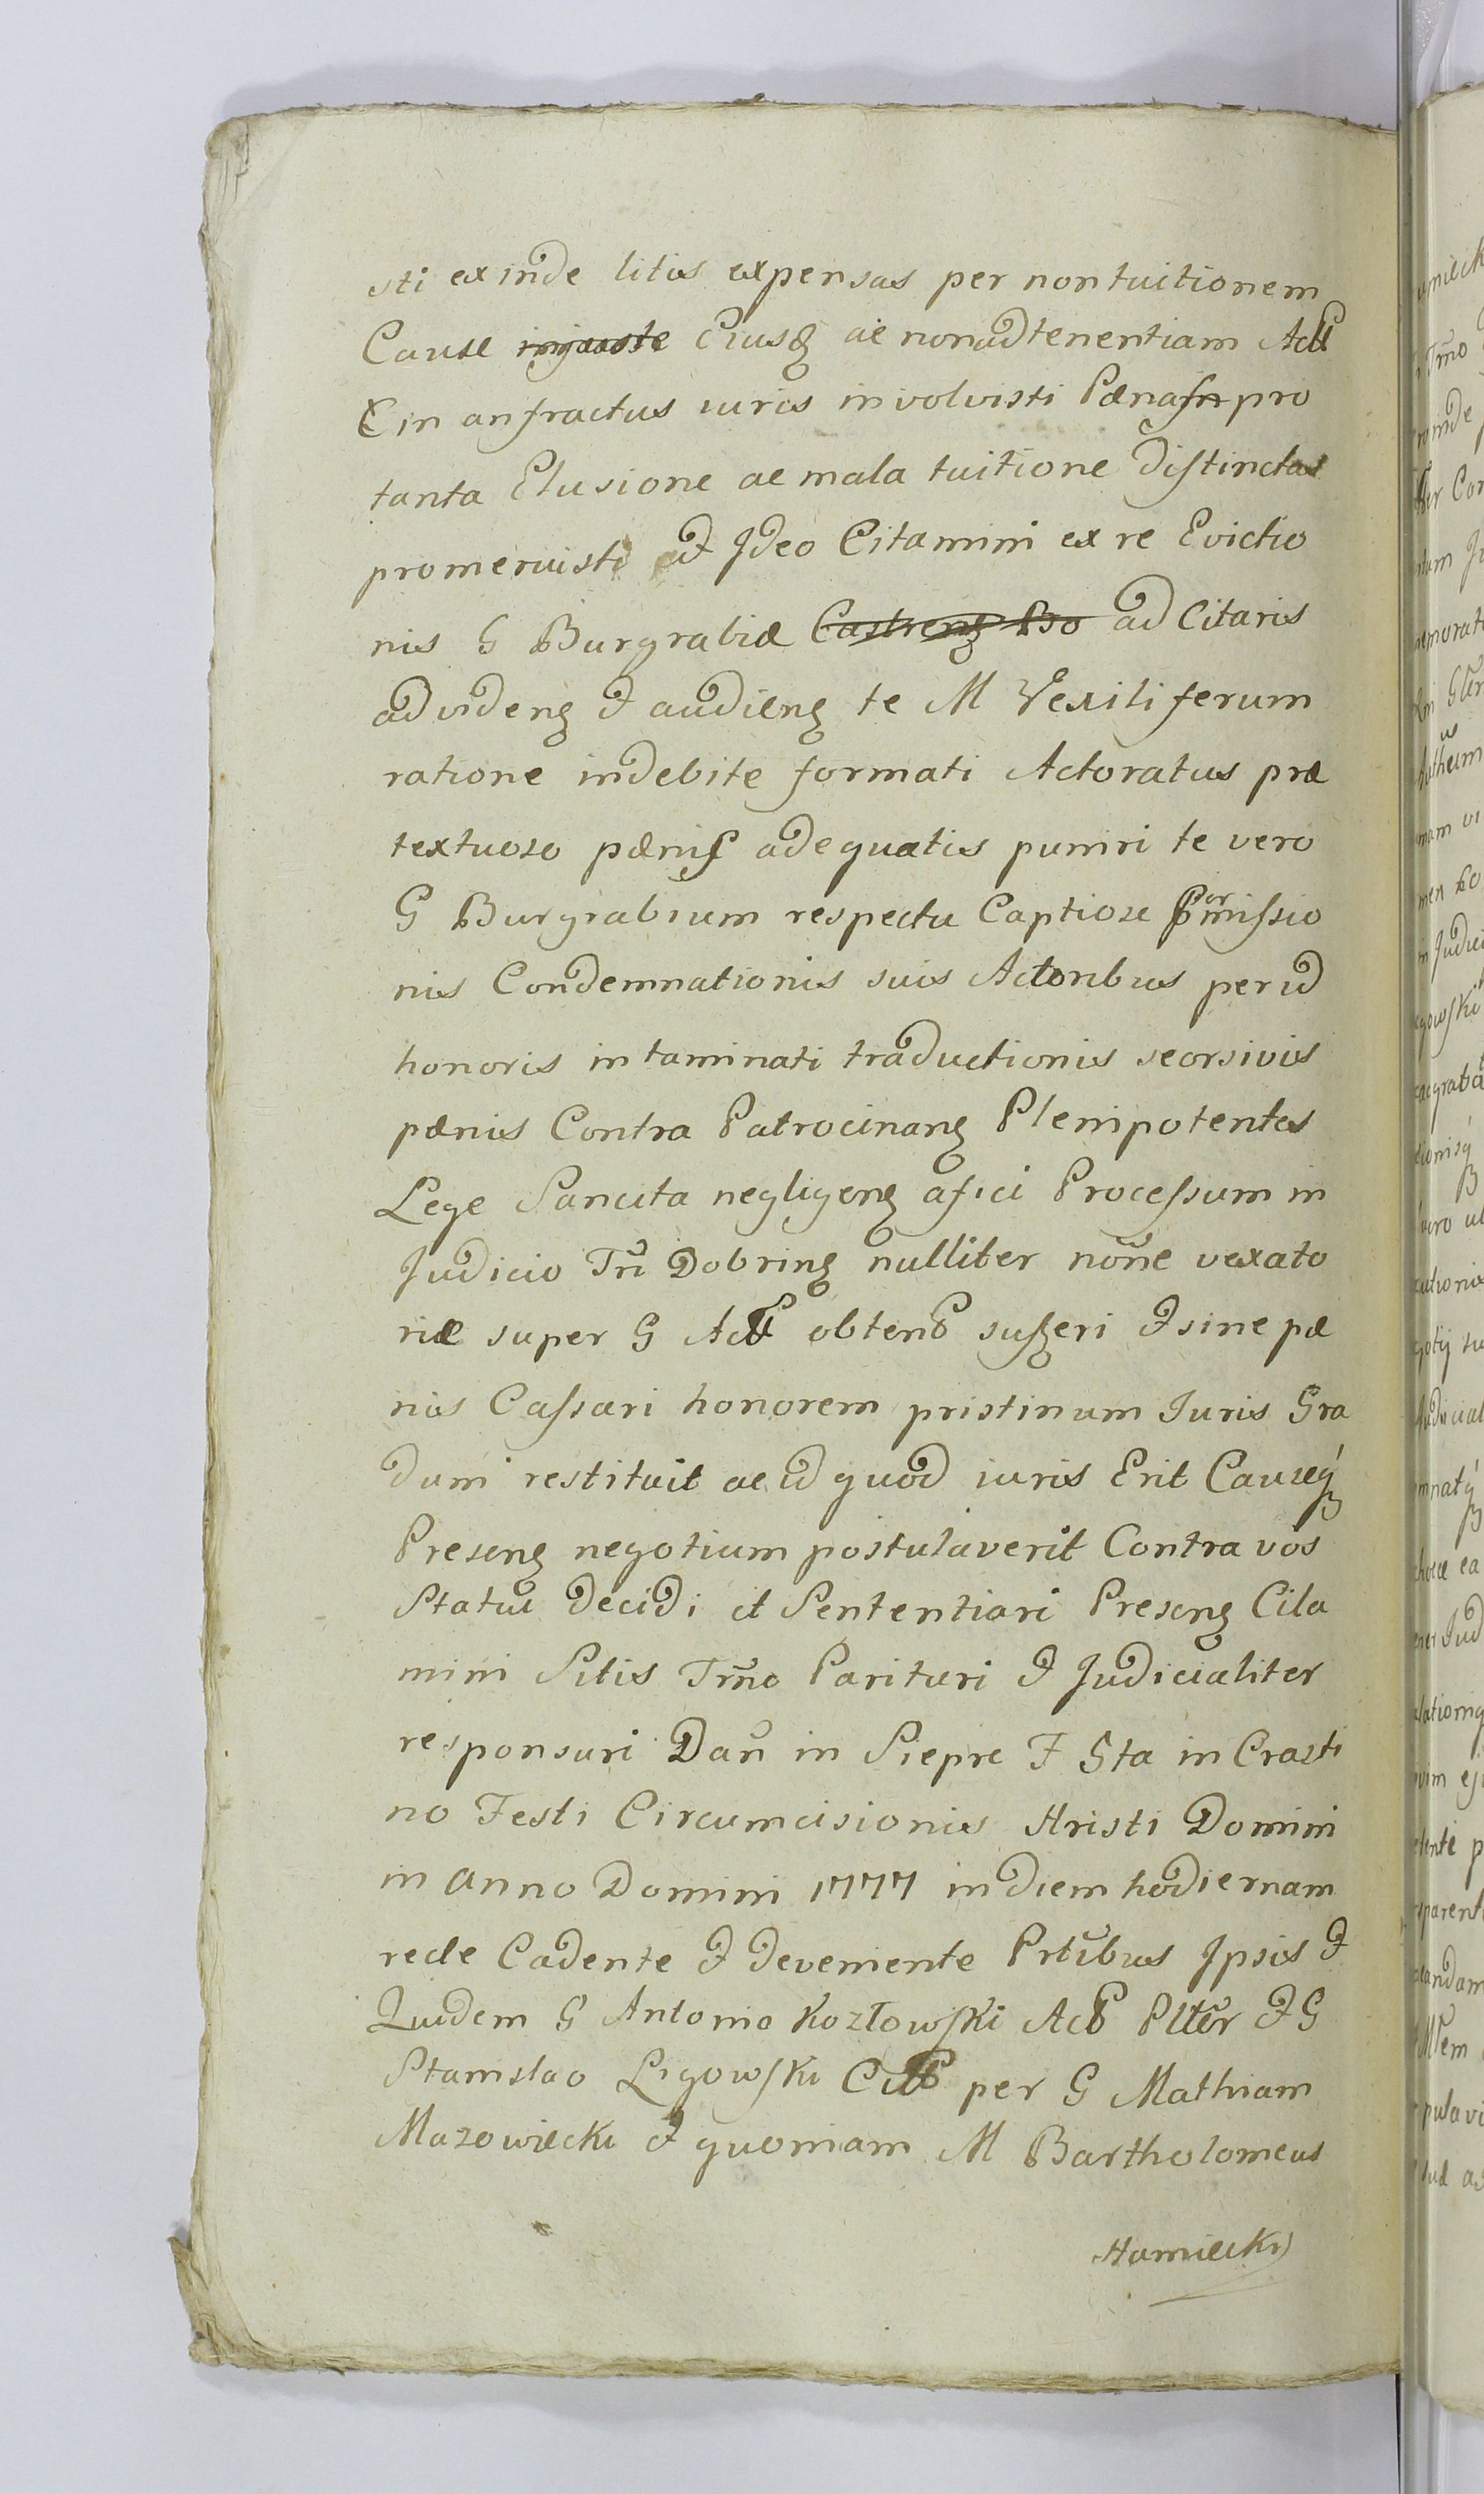 sti exinde litis expensas per nontuitionem
Causæ injuste Ciusq ac nonadtenentiam
in anfractus iuris involvisti Pænas pro
tanta Elusione ac mala tuitione distinctas
promeruisti et Ideo Citamini ex re Evictio
nis G Burgrabiæ Castreng ad Citaris
ad videng et audieng te M Vexiliferum
ratione indebite formati Actoratus præ
textuose pænis adequatis puniri te vero
G Burgrabium respectu Captiose missio
nis Condemnationis suis Actoribus per id
honoris intaminati traductionis seorsivis
pænis Contra Patrocinang Plenipotentes
Lege Sancita negligeng afici Processum in
Judicio Trī Dobring nulliter none vexato
riæ super G obtent suggeri et sine pæ
nis Cassari honorem pristinum Juris Gra
dum restituit ac id quod iuris Erit Causæq
Preseng negotium postulaverit Contra vos
Statui decidi et Sententiari Preseng Cita
mini Sitis Trn̄o Parituri et Judicialiter
responsuri Dan̄ in Siepre F 5ta in Crasti
no Festi Circumcisionis Hristi Domini
in anno Domini 1777 in diem hodiernam
recte Cadente et deveniente Prtibus Ipsis et
Quidem G Antonio Kozłowski Act Ptter et G
Stanislao Ligowski per G Mathiam
Mazowiecki et quoniam M Bartholomeus
Humiecki